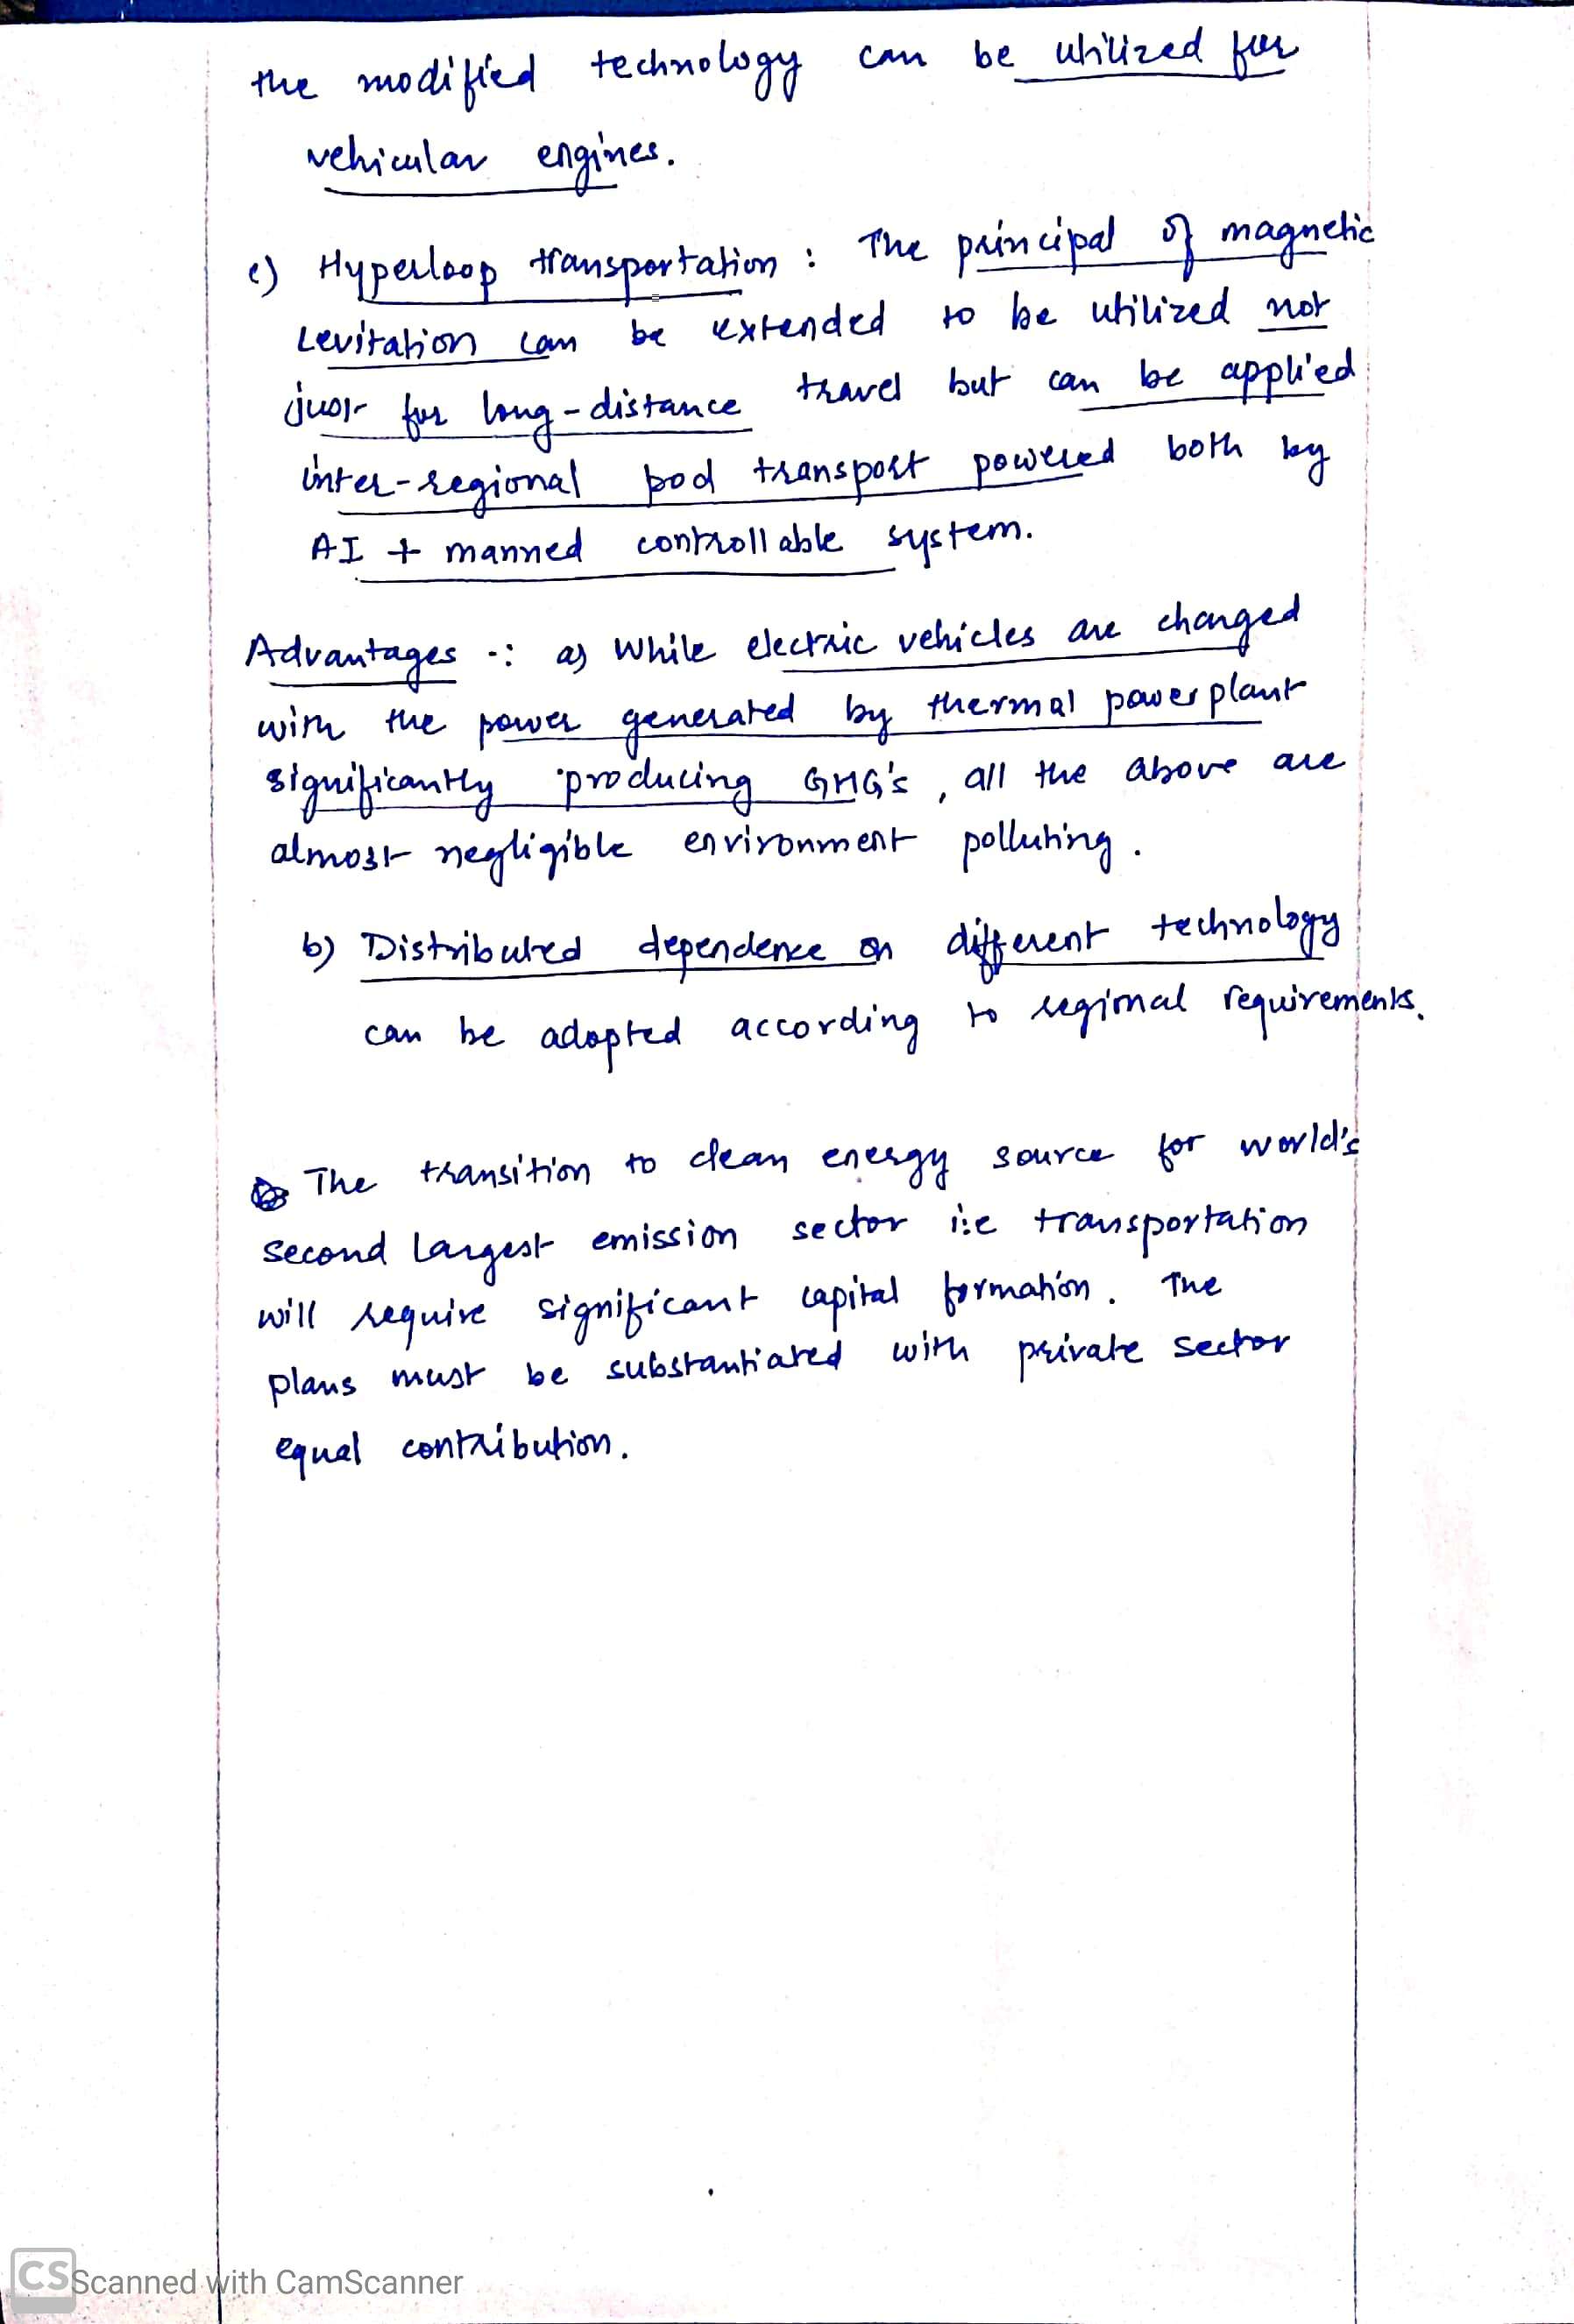 the modified technology can be utilized for
vehicular engines.
e) Hyperloop transportation : The principal of magnetic
Levitation can be extended to be utilized not
just for long-distance travel but can be applied
inter-regional pod transport powered both by
AI + manned controllable system.
Advantages -: a) While electric vehicles are charged
with the power generated by thermal power plant
significantly producing GHG's, all the above are
almost negligible environment polluting.
b) Distributed dependence on different technology
can be adopted according to regional requirements.
The transition to clean energy source for world's
second largest emission sector i.e transportation
will require significant capital formation. The
plans must be substantiated with private sector
equal contribution.
CS Scanned with CamScanner